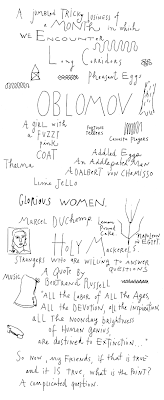 A JUMBLED TRICKY Business of
a MONTH in which
WE ENCOUNTER
Long Corridors
Pheasant Eggs
OBLOMOV
A girl with
fuzzy
pink
COAT
festive
letters
Canasta Players
Addled Eggs
An Addlepated Man
Thelma
ADALBERT von CHAMISSO
Lime Jello
GLORIOUS WOMEN.
MARCEL DUCHAMP
Lemon
Pound
Cake
NAPOLEON
in EGYPT.
HOLY MACKERELS.
Strangers who are willing to answer
QUESTIONS
Music
A Quote By
Bertrand Russell
"All the labor of All the Ages,
ALL the DEVOTION, all the inspiration,
all The Noonday brightness
of Human Genius,
are destined to EXTINCTION..."
So now, my friends, if that is true
and it IS true, what is the POINT?
A complicated question.